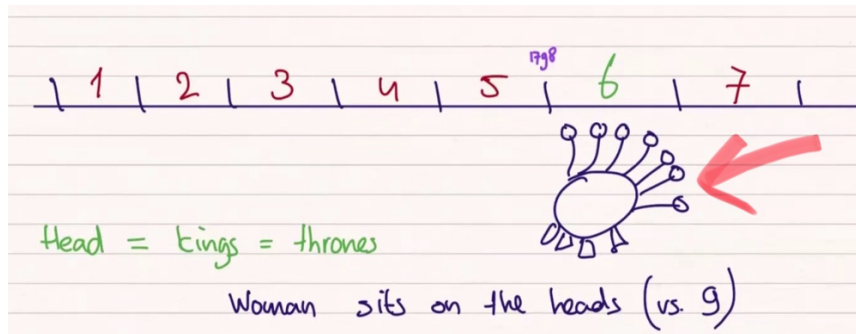 1 2 3 4 5 1798 6 7
Head = kings = thrones
Woman sits on the heads (vs. 9)